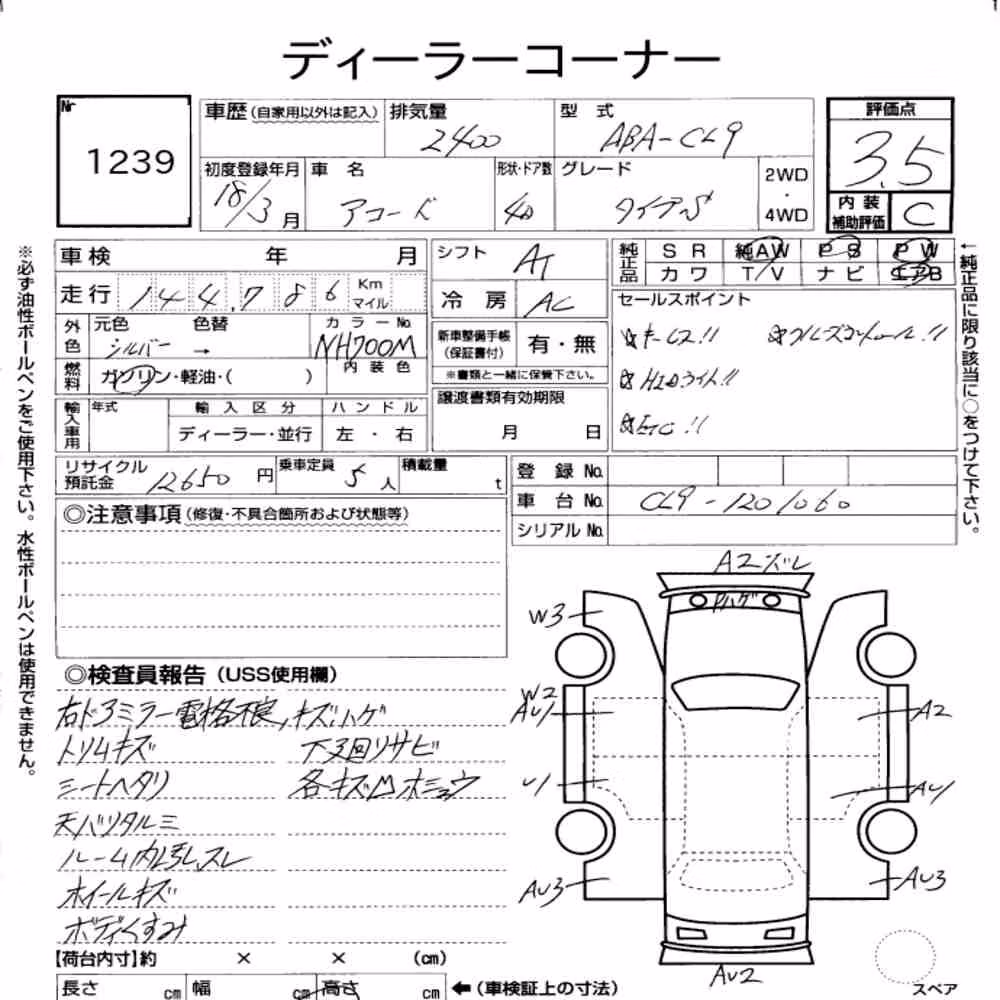 ディーラーコーナー
Nr
1239
車歴 (自家用以外は記入)
排気量
2400
型 式
ABA-CL9
評価点
3.5
初度登録年月
18/3 月
車 名
アコード
形状・ドア数
4D
グレード
タイプS
2WD
・
4WD
内 装
補助評価
C
車検 年 月
走行 144,786 Km
マイル
シフト
AT
冷 房
AC
純正品
S R 純AW P S P W
カワ T/V ナビ エアB
外色
元色 色替
シルバー →
カラーNo.
NH700M
内装色
燃料
ガソリン・軽油・( )
新車整備手帳
(保証書付)
有・無
※書類と一緒に保管下さい。
セールスポイント
☆ナビ!! ☆クルーズコントロール!!
☆HIDライト!!
☆ETC!!
輸入車用
年式
輸 入 区 分
ディーラー・並行
ハ ン ド ル
左 ・ 右
譲渡書類有効期限
月 日
リサイクル
預託金
12650 円
乗車定員
5 人
積載量
t
登 録 No.
車 台 No. CL9-1201060
シリアル No.
◎注意事項 (修復・不具合箇所および状態等)
◎検査員報告 (USS使用欄)
右ドアミラー電格不良,キズハゲ
トリムキズ
下廻リサビ
シートヘタリ
各キズ凹ホシュウ
天バリタルミ
ルーム内汚レ,スレ
ホイールキズ
ボディくすみ
A2ズレ
Pハゲ
W3
W2
AU1
A2
U1
AU1
AU3
AU3
AU2
スペア
【荷台内寸】約 × × (cm)
長さ cm 幅 cm 高さ cm
←(車検証上の寸法)
※必ず油性ボールペンをご使用下さい。水性ボールペンは使用できません。
←純正品に限り該当に○をつけて下さい。